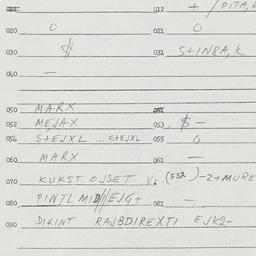 011 012 + / PITA,
020 0 021 0
030 $ 031 S+IN8A, K
040 —
050 MARX 051
052 MEJAX 053 $ —
054 S+EJXL ... C+EJXL 055 0
060 MARX 061 —
070 KUKST OJSET V. (532) -2+MURE
080 PINTL MID//EJG+ 081 —
090 DIKINT RAJBDIREXTI EJK2-